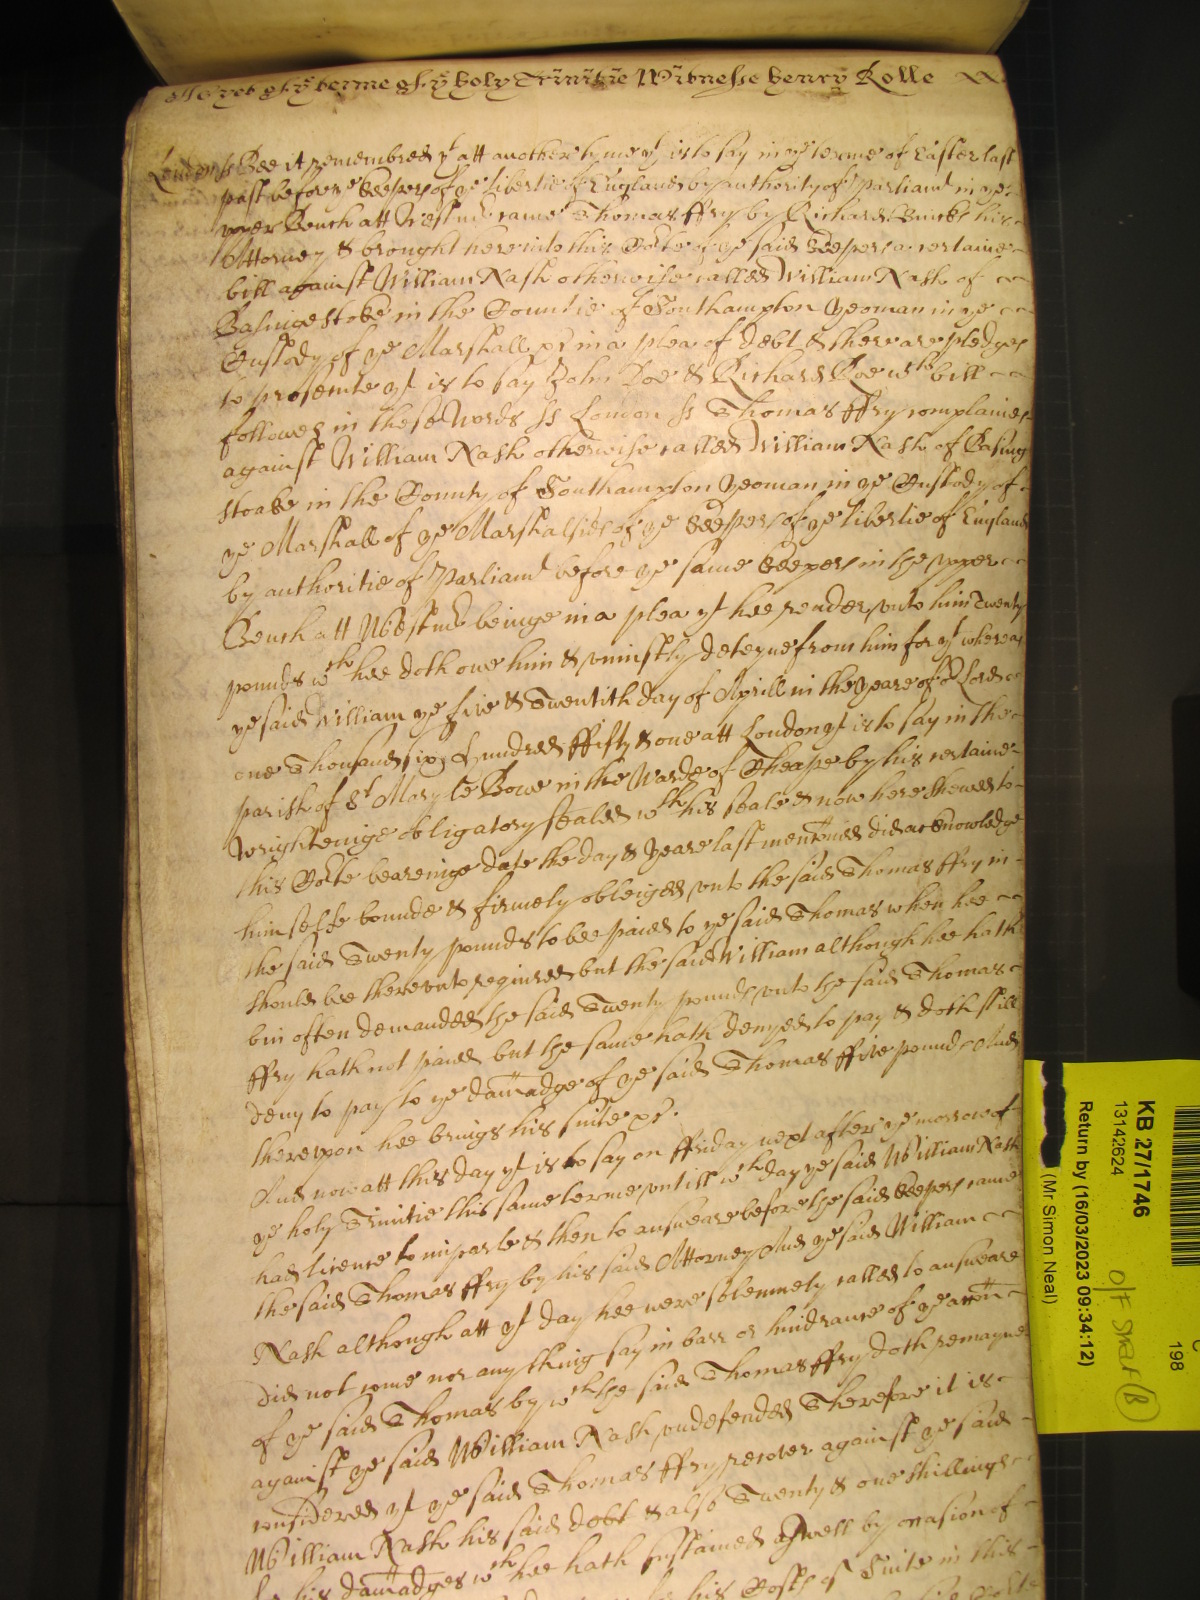 As yet of ye terme of ye holy Trinitie Witnesse Henry Rolle
London ss Bee it remembred yt att another tyme yt is to say in ye terme of Easter last
past before ye keepers of ye libertie of England by authority of Parliamt in ye
upper Bench att Westmr came Thomas ffry by Richard his
Attorney & brought here into this Cote of ye said keepers a certaine
bill against William Nash otherwise called William Nash of
Basingestoke in the Countie of Southampton yeoman in ye
Custody of ye Marshall &c in a plea of debt & there are pledges
to prosecute yt is to say John Doe & Richard Roe wch bill
followes in these words ss London ss Thomas ffry complaines
against William Nash otherwise called William Nash of Basing
stoake in the County of Southampton yeoman in ye Custody of
ye Marshall of ye Marshalsies of ye keepers of ye libertie of England
by authoritie of Parliamt before ye same keepers in the upper
Bench att Westmr beinge in a plea yt hee render unto him Twenty
pounds wch hee doth owe him & uniustly deteyne from him for yt whereas
ye said William ye five & Twentith day of Aprill in the yeare of or Lord
one Thousand six Hundred ffifty & one att London yt is to say in the
parish of St Mary le Bowe in the Warde of Cheape by his certaine
wrighteinge obligatory sealed wth his seale & now here shewed to
this Cote beareinge date the day & yeare last mentioned did acknowledge
himselfe bounde & firmely obleiged unto the said Thomas ffry in
the said Twenty pounds to bee paied to ye said Thomas when hee
should bee thereunto required but the said William although hee hath
bin often demanded the said Twenty pounds unto the said Thomas
ffry hath not paied but the same hath denyed to pay & doth still
deny to pay to ye damadge of ye said Thomas ffive pounds And
thereupon hee brings his suite &c.
And now att this day yt is to say on ffriday next after ye morrow of
ye holy Trinitie this same terme untill wch day ye said William Nash
had licence to imparle & then to answeare before the said keepers came
the said Thomas ffry by his said Attorney And ye said William
Nash although att yt day hee were solemnely called to answeare
did not come nor any thing say in barr or hindrance of ye accon
of ye said Thomas by wch the said Thomas ffry doth remayne
against ye said William Nash undefended Therefore it is
considered yt ye said Thomas ffry recover against ye said
William Nash his said debt & also Twenty & one shillings
his damadges wch hee hath sustained aswell by occasion of
his Costs of Suite in this
KB 27/1746
13142624
Return by (16/03/2023 09:34:12)
(Mr Simon Neal)
198
O/F